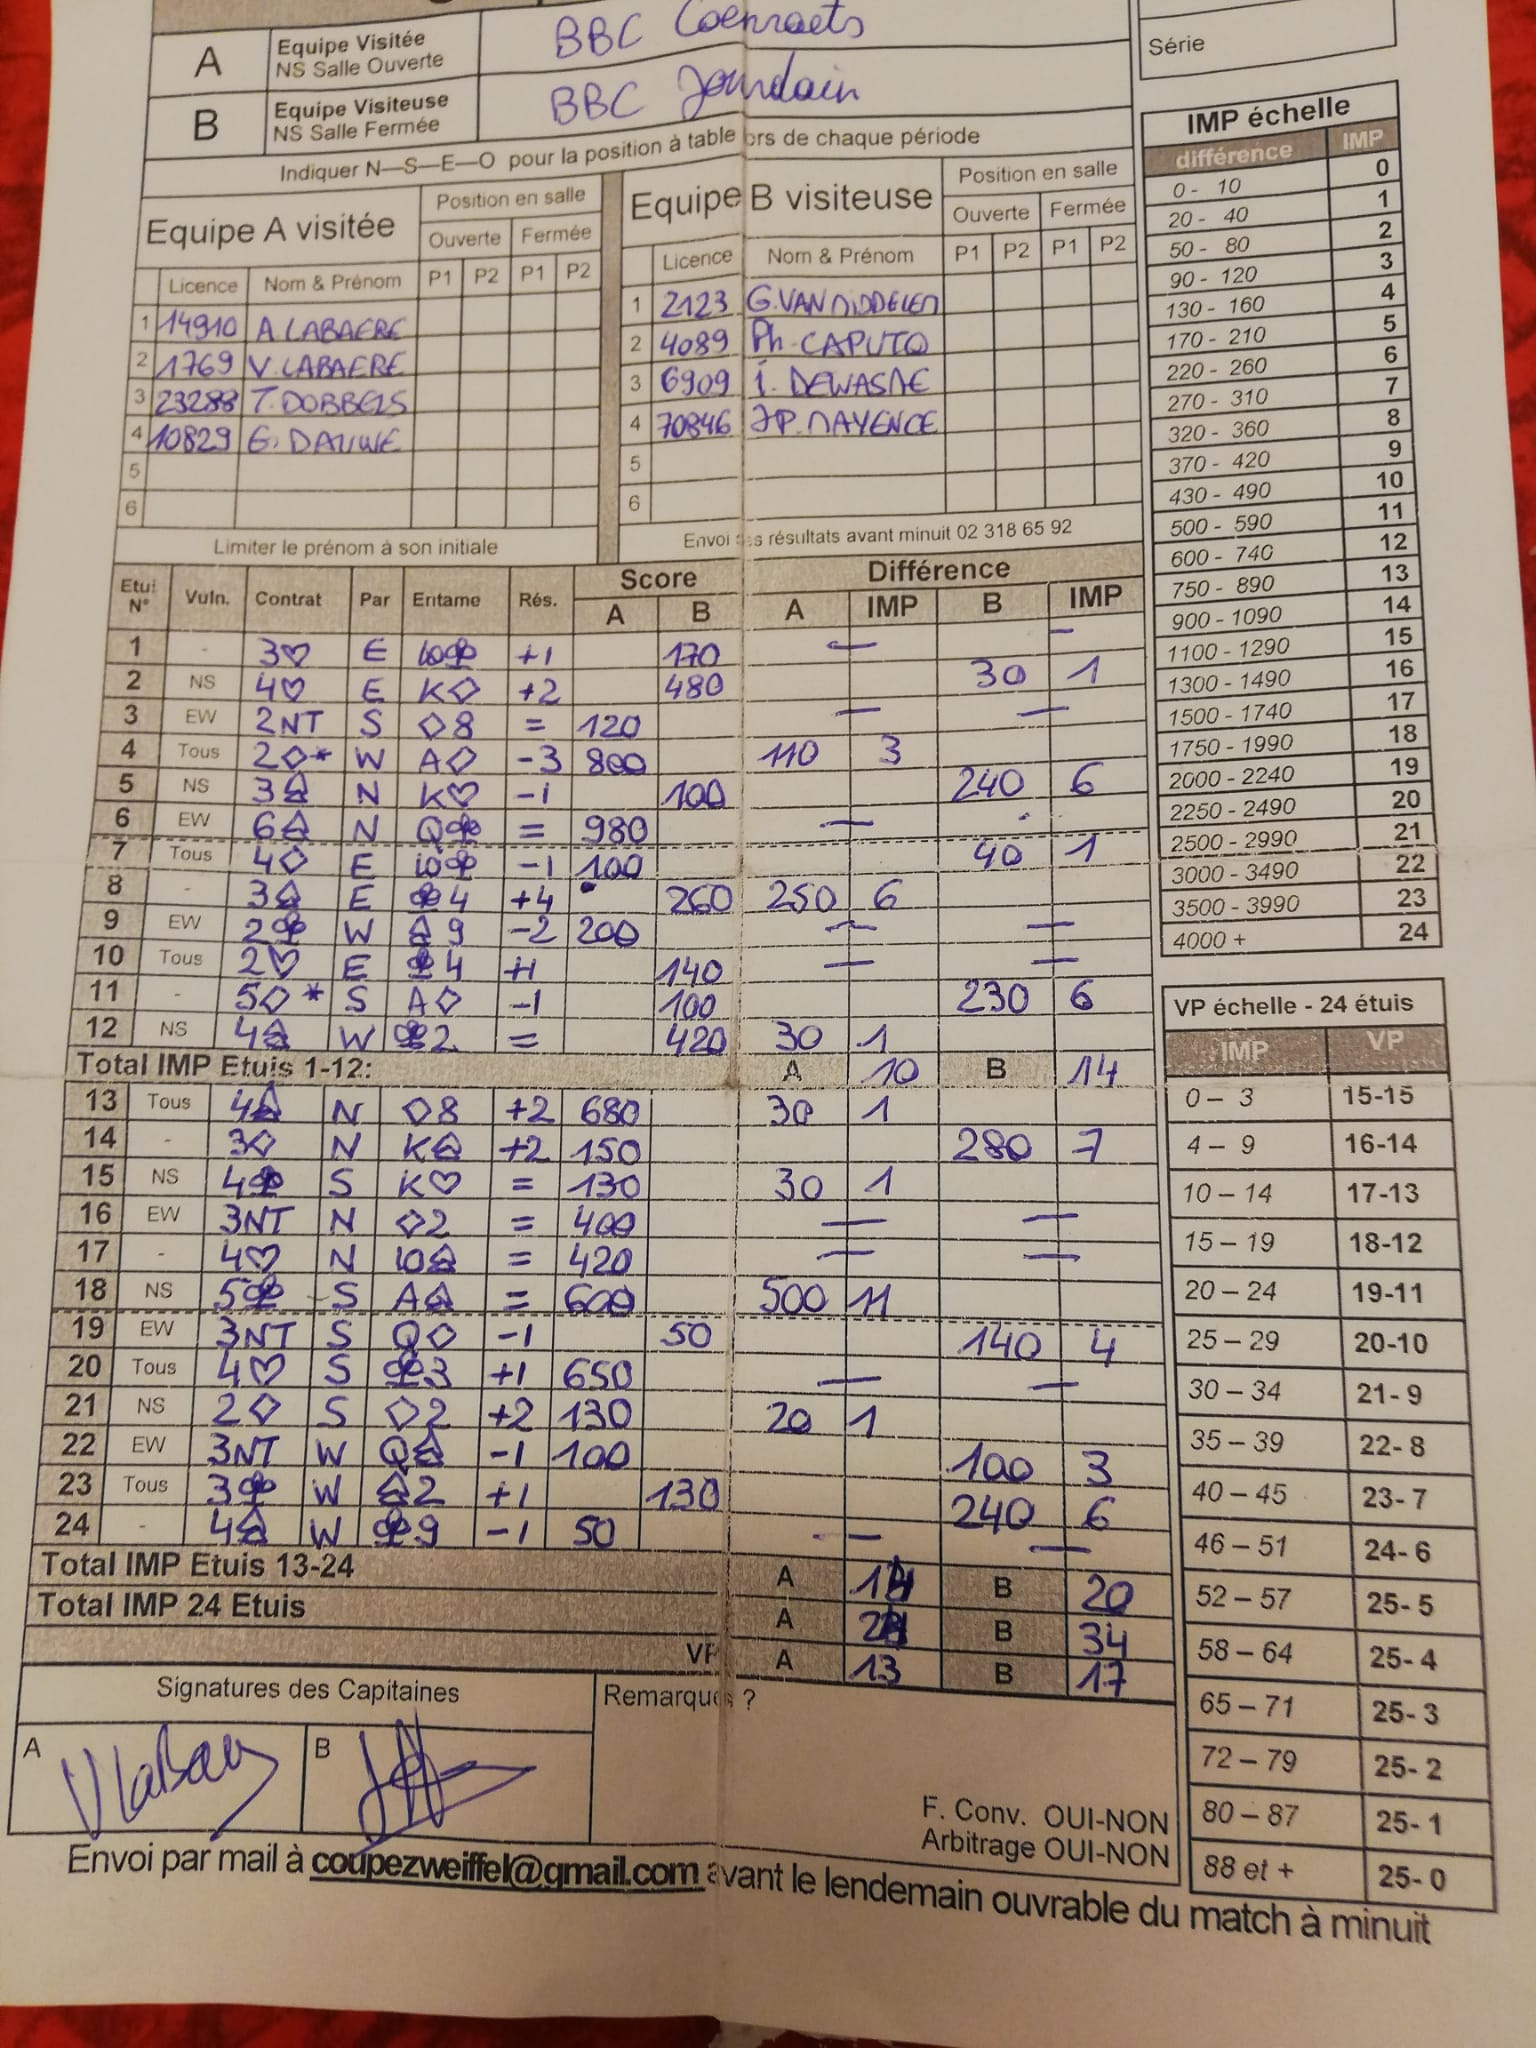 A Equipe Visitée NS Salle Ouverte BBC Coenraets
B Equipe Visiteuse NS Salle Fermée BBC Jourdain
Série
Indiquer N—S—E—O pour la position à table lors de chaque période
Equipe A visitée Position en salle
Ouverte Fermée
Licence Nom & Prénom P1 P2 P1 P2
1 14910 A. LABAERE
2 1769 V. LABAERE
3 23288 T. DOBBELS
4 10829 G. DAUWE
5
6
Limiter le prénom à son initiale
Equipe B visiteuse Position en salle
Ouverte Fermée
Licence Nom & Prénom P1 P2 P1 P2
1 2123 G. VAN MIDDELEM
2 4089 Ph. CAPUTO
3 6909 I. DEWASME
4 70846 JP. MAYENCE
5
6
Envoi des résultats avant minuit 02 318 65 92
Etui N° Vuln. Contrat Par Entame Rés. Score A B Différence A IMP B IMP
1 - 3♡ E 10♣ +1 170 — —
2 NS 4♡ E K♢ +2 480 30 1
3 EW 2NT S ♢8 = 120 — —
4 Tous 2♢* W A♢ -3 800 110 3
5 NS 3♤ N K♡ -1 100 240 6
6 EW 6♤ N Q♣ = 980 —
7 Tous 4♢ E 10♣ -1 100 40 1
8 - 3♤ E ♣4 +4 260 250 6
9 EW 2♣ W ♤9 -2 200 — —
10 Tous 2♡ E ♣4 +1 140 — —
11 - 5♢* S A♢ -1 100 230 6
12 NS 4♤ W ♣2 = 420 30 1
Total IMP Etuis 1-12: A 10 B 14
13 Tous 4♤ N ♢8 +2 680 30 1
14 - 3♢ N K♤ +2 150 280 7
15 NS 4♣ S K♡ = 130 30 1
16 EW 3NT N ♢2 = 400 — —
17 - 4♡ N 10♤ = 420 — —
18 NS 5♣ S A♤ = 600 500 11
19 EW 3NT S Q♢ -1 50 140 4
20 Tous 4♡ S ♣3 +1 650 — —
21 NS 2♢ S ♢2 +2 130 20 1
22 EW 3NT W Q♤ -1 100 100 3
23 Tous 3♣ W ♤2 +1 130 240 6
24 - 4♤ W ♣9 -1 50 — —
Total IMP Etuis 13-24 A B 20
Total IMP 24 Etuis A B 34
VP A 13 B 17
Signatures des Capitaines
A B
Remarques ?
F. Conv. OUI-NON
Arbitrage OUI-NON
Envoi par mail à coupezweiffel@gmail.com avant le lendemain ouvrable du match à minuit
IMP échelle
différence IMP
0 - 10 0
20 - 40 1
50 - 80 2
90 - 120 3
130 - 160 4
170 - 210 5
220 - 260 6
270 - 310 7
320 - 360 8
370 - 420 9
430 - 490 10
500 - 590 11
600 - 740 12
750 - 890 13
900 - 1090 14
1100 - 1290 15
1300 - 1490 16
1500 - 1740 17
1750 - 1990 18
2000 - 2240 19
2250 - 2490 20
2500 - 2990 21
3000 - 3490 22
3500 - 3990 23
4000 + 24
VP échelle - 24 étuis
IMP VP
0 – 3 15-15
4 – 9 16-14
10 – 14 17-13
15 – 19 18-12
20 – 24 19-11
25 – 29 20-10
30 – 34 21- 9
35 – 39 22- 8
40 – 45 23- 7
46 – 51 24- 6
52 – 57 25- 5
58 – 64 25- 4
65 – 71 25- 3
72 – 79 25- 2
80 – 87 25- 1
88 et + 25- 0